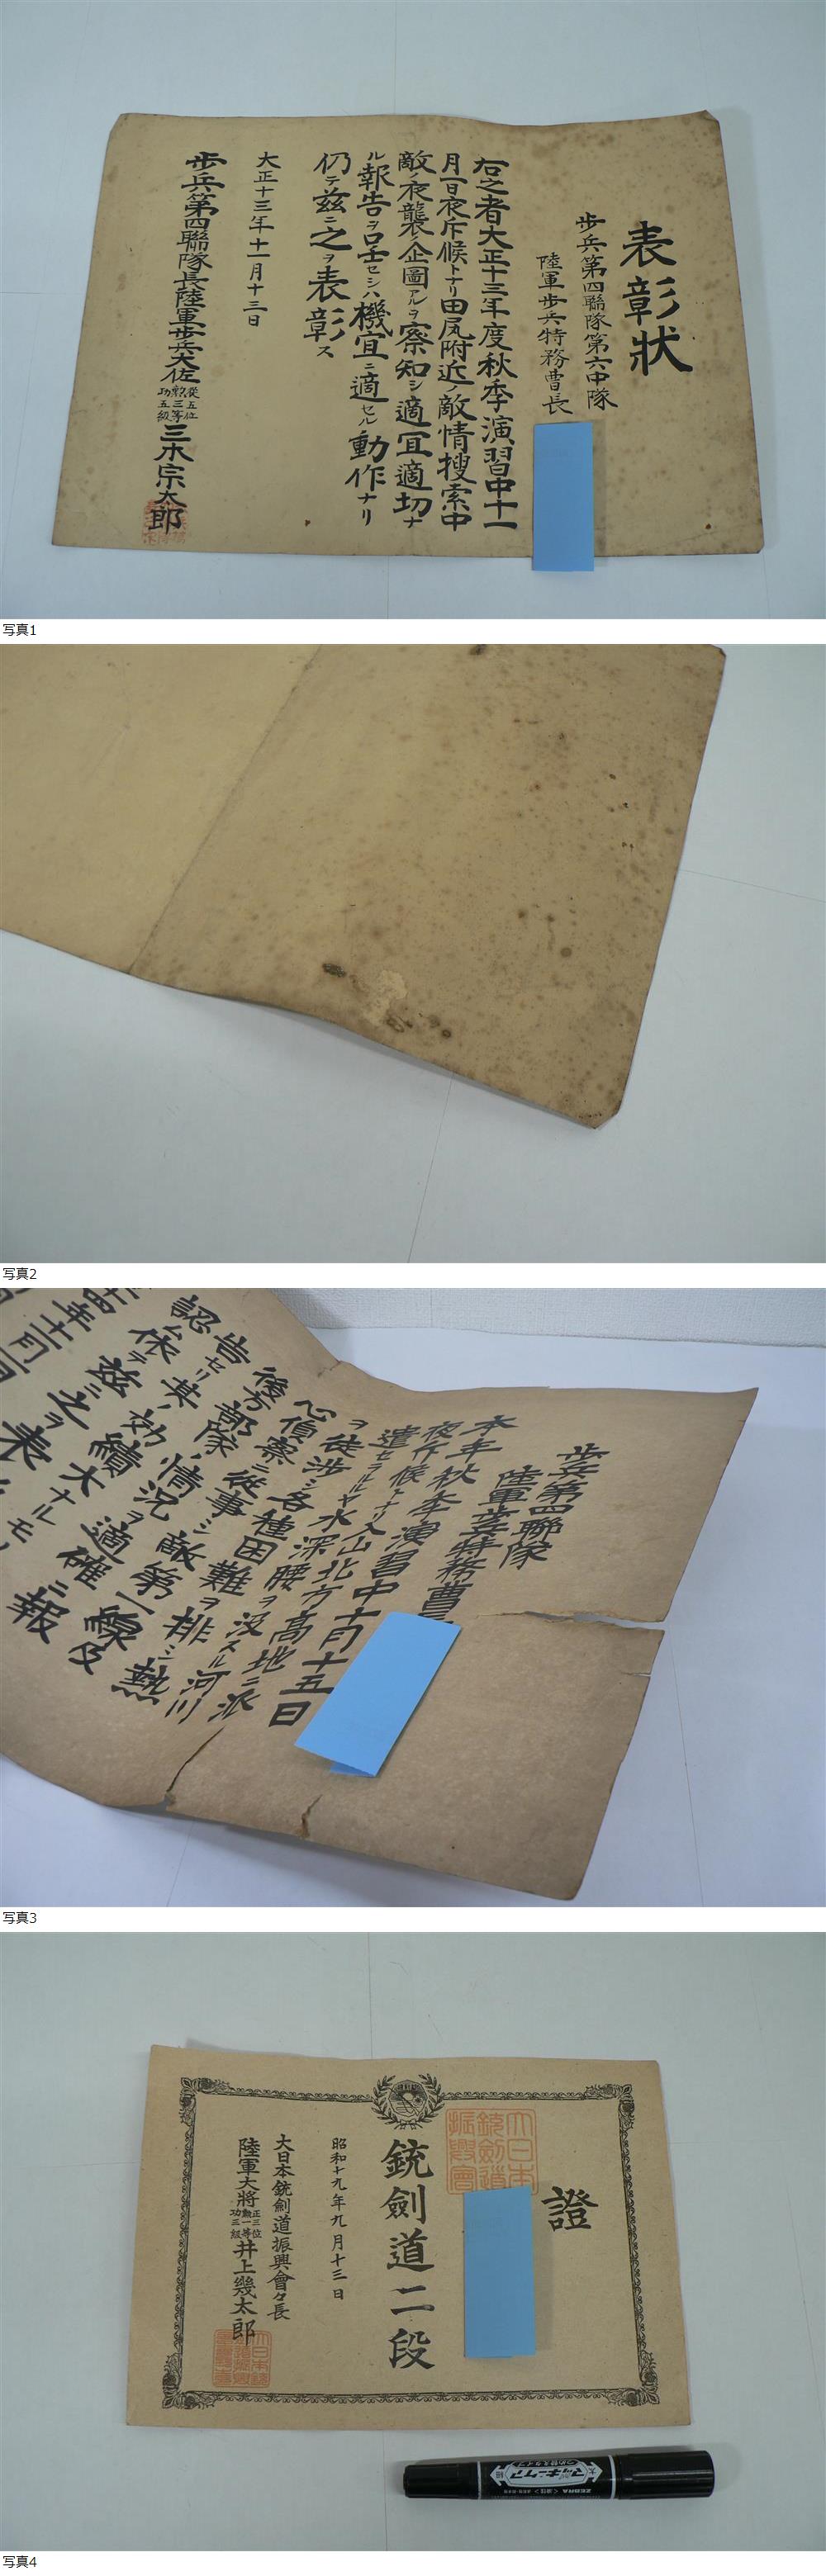 表彰状
歩兵第四聯隊第六中隊
陸軍歩兵特務曹長
右之者大正十三年度秋季演習中十一
月一日夜斥候トナリ田尻附近ノ敵情捜索中
敵ノ夜襲ノ企圖アルヲ察知シ適宜適切ナ
ル報告ヲ呈セシハ機宜ニ適セル動作ナリ
仍テ茲ニ之ヲ表彰ス
大正十三年十一月十三日
歩兵第四聯隊長陸軍歩兵大佐
從五位
勲三等
功五級
三木宗太郎
写真1
写真2
歩兵第四聯隊
陸軍歩兵特務曹
本年秋季演習中十月十五日
夜斥候トナリ入山北方高地ニ派
遣セラルヤ水深腰ヲ没スル河川
ヲ徒渉シ各種困難ヲ排シ熱
心偵察ニ從事シ敵第一線及
後方部隊ノ情況ヲ適確ニ報
告セリ其ノ効績大ナルモノ
認ム依テ茲ニ之ヲ表
写真3
證
大日本銃劍道振興會
銃劍道二段
昭和十九年九月十三日
大日本銃劍道振興會々長
陸軍大將
正三位
勲一等
功三級
井上幾太郎
ZEBRA
マッキーケア
つめ替えタイプ
太
細
写真4